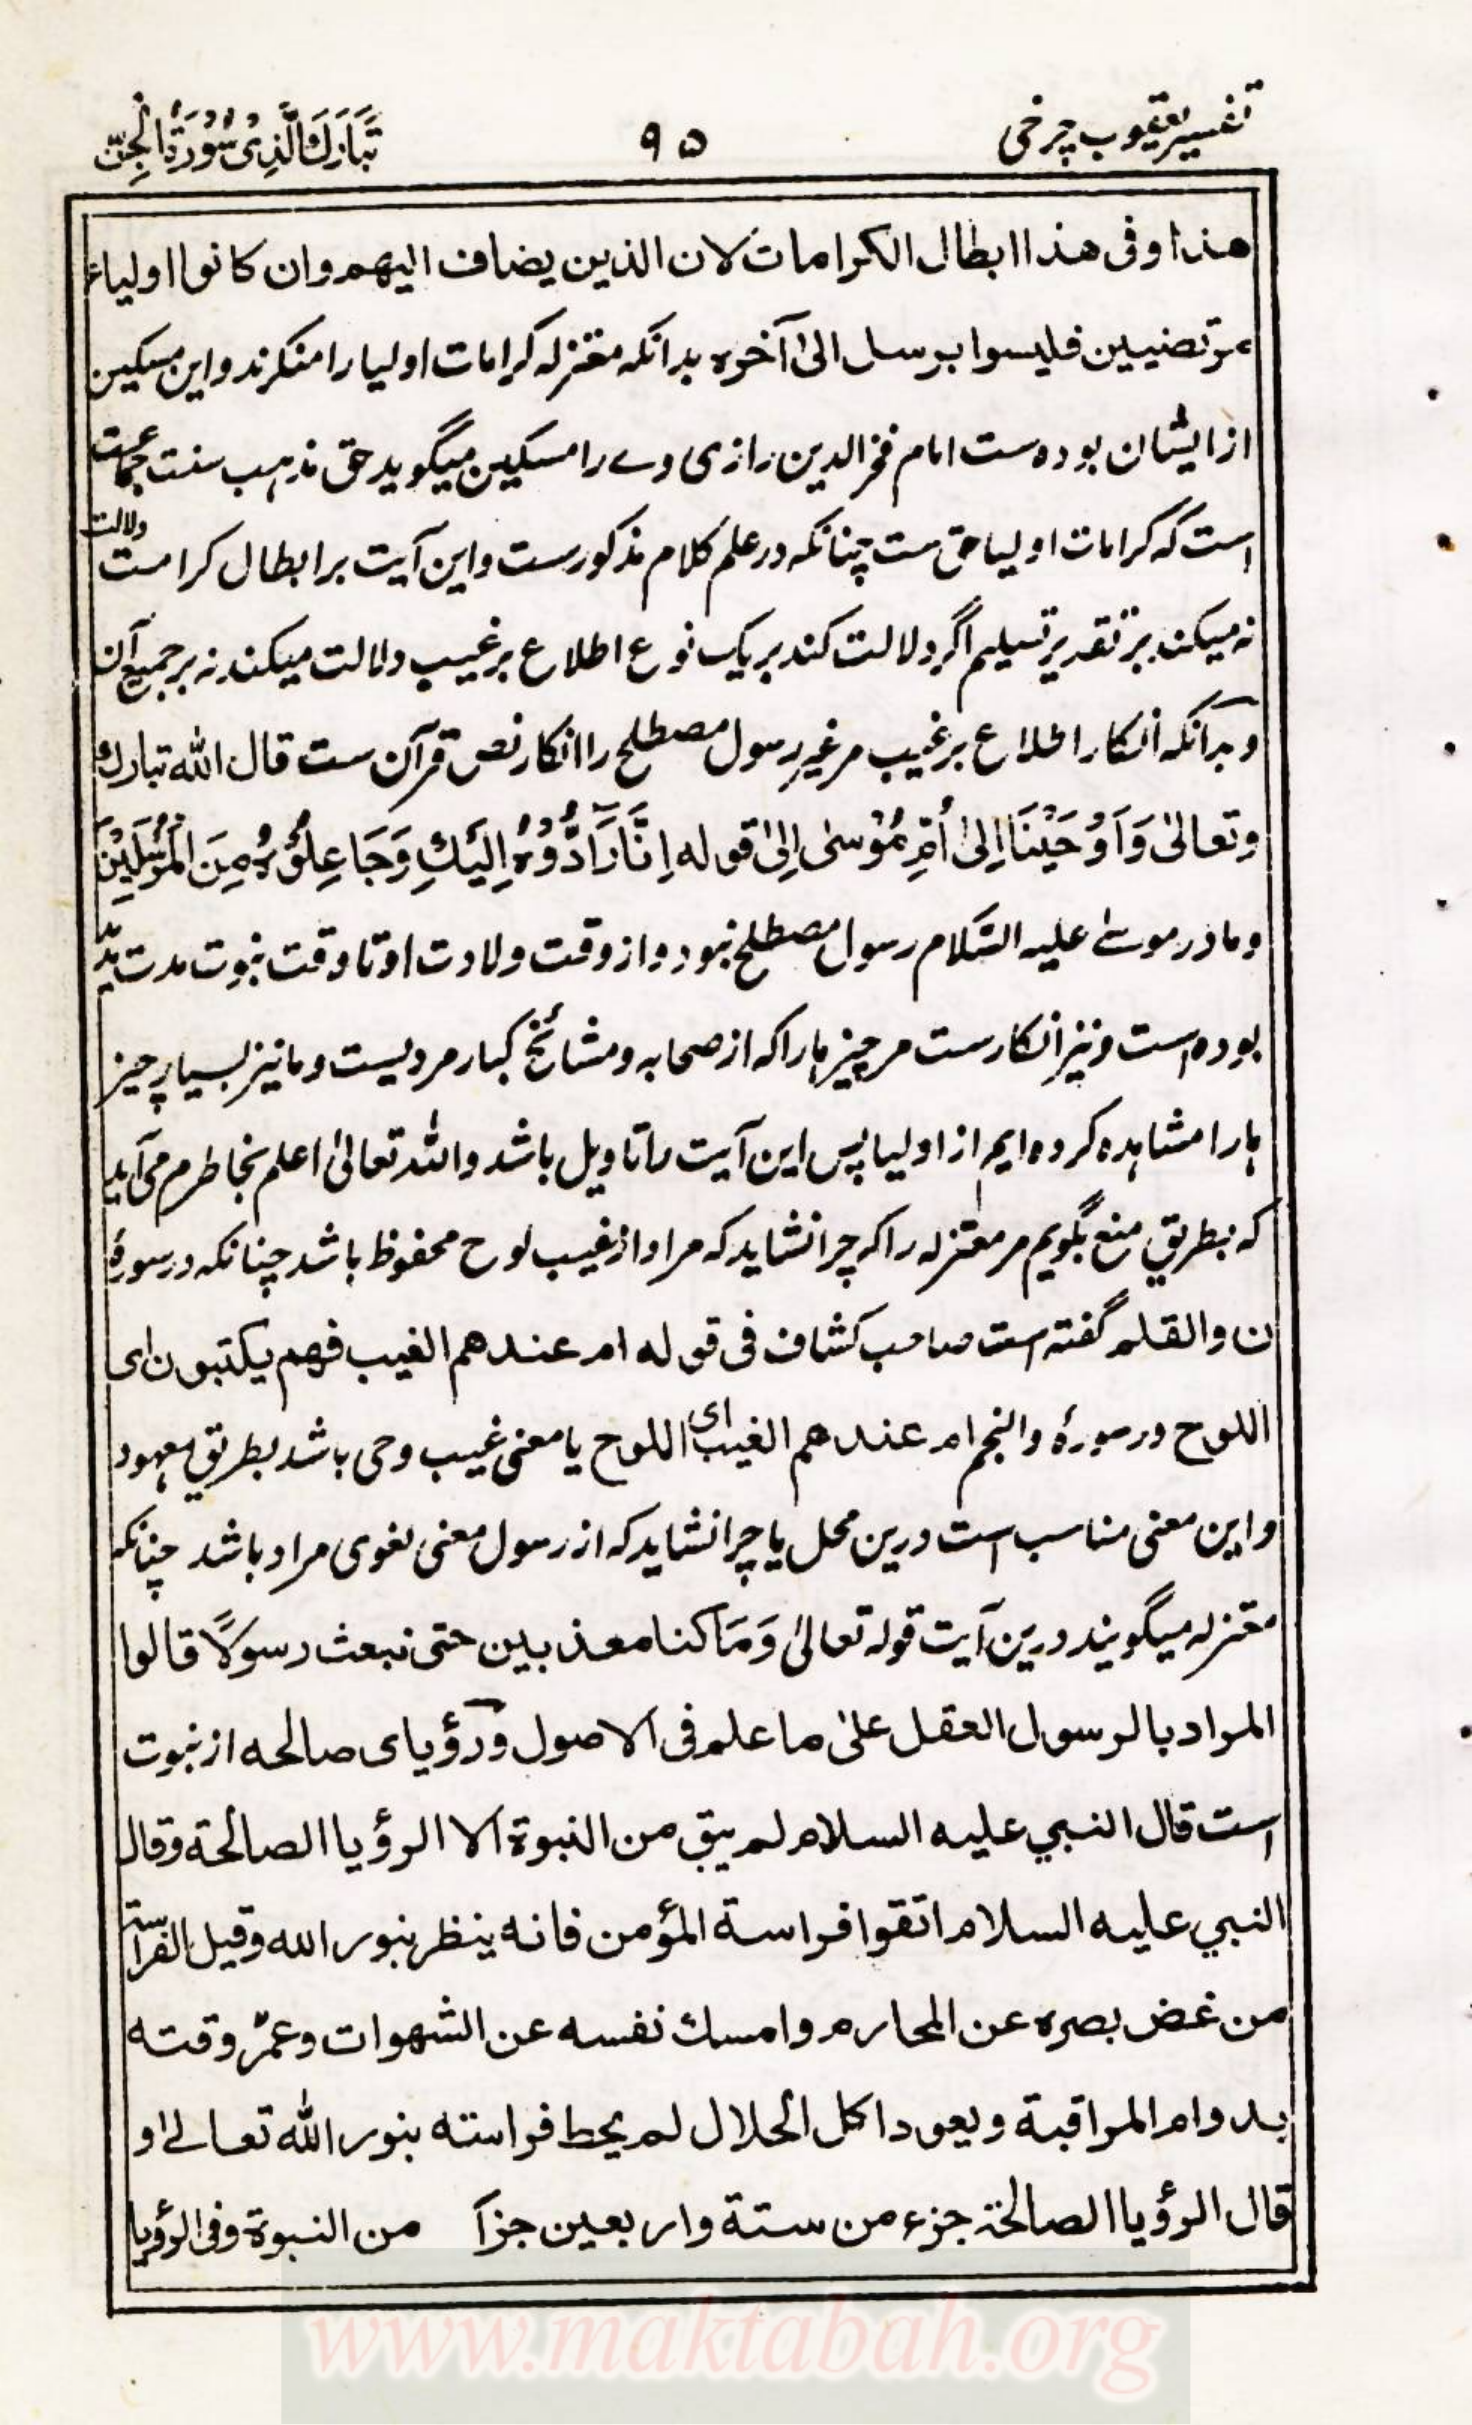 تفسیر یعقوب چرخی
۹۵
تَبَارَكَ الَّذِیْ سُوْرَةُ الْجِنّ
هذا وفی هذا ابطال الکرامات لان الذین یضاف الیهم وان کانوا اولیاء
مرتضیین فلیسوا برسل الیٰ آخره بدانکه معتزله کرامات اولیا را منکرند و این مسکین
از ایشان بوده ست امام فخر الدین رازی وے را مسکین میگوید حق مذهب سنت جماعت
است که کرامات اولیا حق ست چنانکه در علم کلام مذکور ست و این آیت بر ابطال کرامت دلالت
نه میکند بر تقدیر تسلیم اگر دلالت کند بر یک نوع اطلاع بر غیب دلالت میکند نه بر جمیع آن
و بدآنکه انکار اطلاع بر غیب مر غیر رسول مصطلح را انکار نص قرآن ست قال الله تبارك
وتعالیٰ وَاَوْحَیْنَا اِلیٰ اُمِّ مُوْسٰی اِلیٰ قوله اِنَّا رَآدُّوْهُ اِلَیْكِ وَجَاعِلُوْهُ مِنَ الْمُرْسَلِیْنَ
و مادر موسےٰ علیه السَّلام رسول مصطلح نبود و از وقت ولادت او تا وقت نبوت مدت
بوده است و نیز انکار ست مر چیز ها را که از صحابه و مشائخ کبار مرویست و ما نیز بسیار چیز
ها را مشاهده کرده ایم از اولیا پس این آیت را تاویل باشد والله تعالیٰ اعلم بخاطرم می آید
که بطریق منع بگویم مر معتزله را که چرا نشاید که مراد از غیب لوح محفوظ باشد چنانکه در سورهٔ
ن والقلم گفته است صاحب کشاف فی قوله ام عندهم الغیب فهم یکتبون ای
اللوح و در سورهٔ والنجم ام عندهم الغیب ای اللوح یا معنی غیب وحی باشد بطریق معهود
و این معنی مناسب است درین محل یا چرا نشاید که از رسول معنی لغوی مراد باشد چنانکه
معتزله میگویند درین آیت قوله تعالیٰ وَمَا کنا معذبین حتی نبعث رسولًا قالوا
المراد بالرسول العقل علیٰ ما علم فی الاصول و رؤیای صالحه از نبوت
است قال النبي علیه السلام لم یبق من النبوة الا الرؤیا الصالحة وقال
النبي علیه السلام اتقوا فراسة المؤمن فانه ینظر بنور الله وقیل الفراسة
من غض بصره عن المحارم وامسك نفسه عن الشهوات وعمّر وقته
بدوام المراقبة ویعود اکل الحلال لم یحط فراسته بنور الله تعالےٰ او
قال الرؤیا الصالحة جزء من ستة واربعین جزآ من النبوة وفی الرؤیا
www.maktabah.org